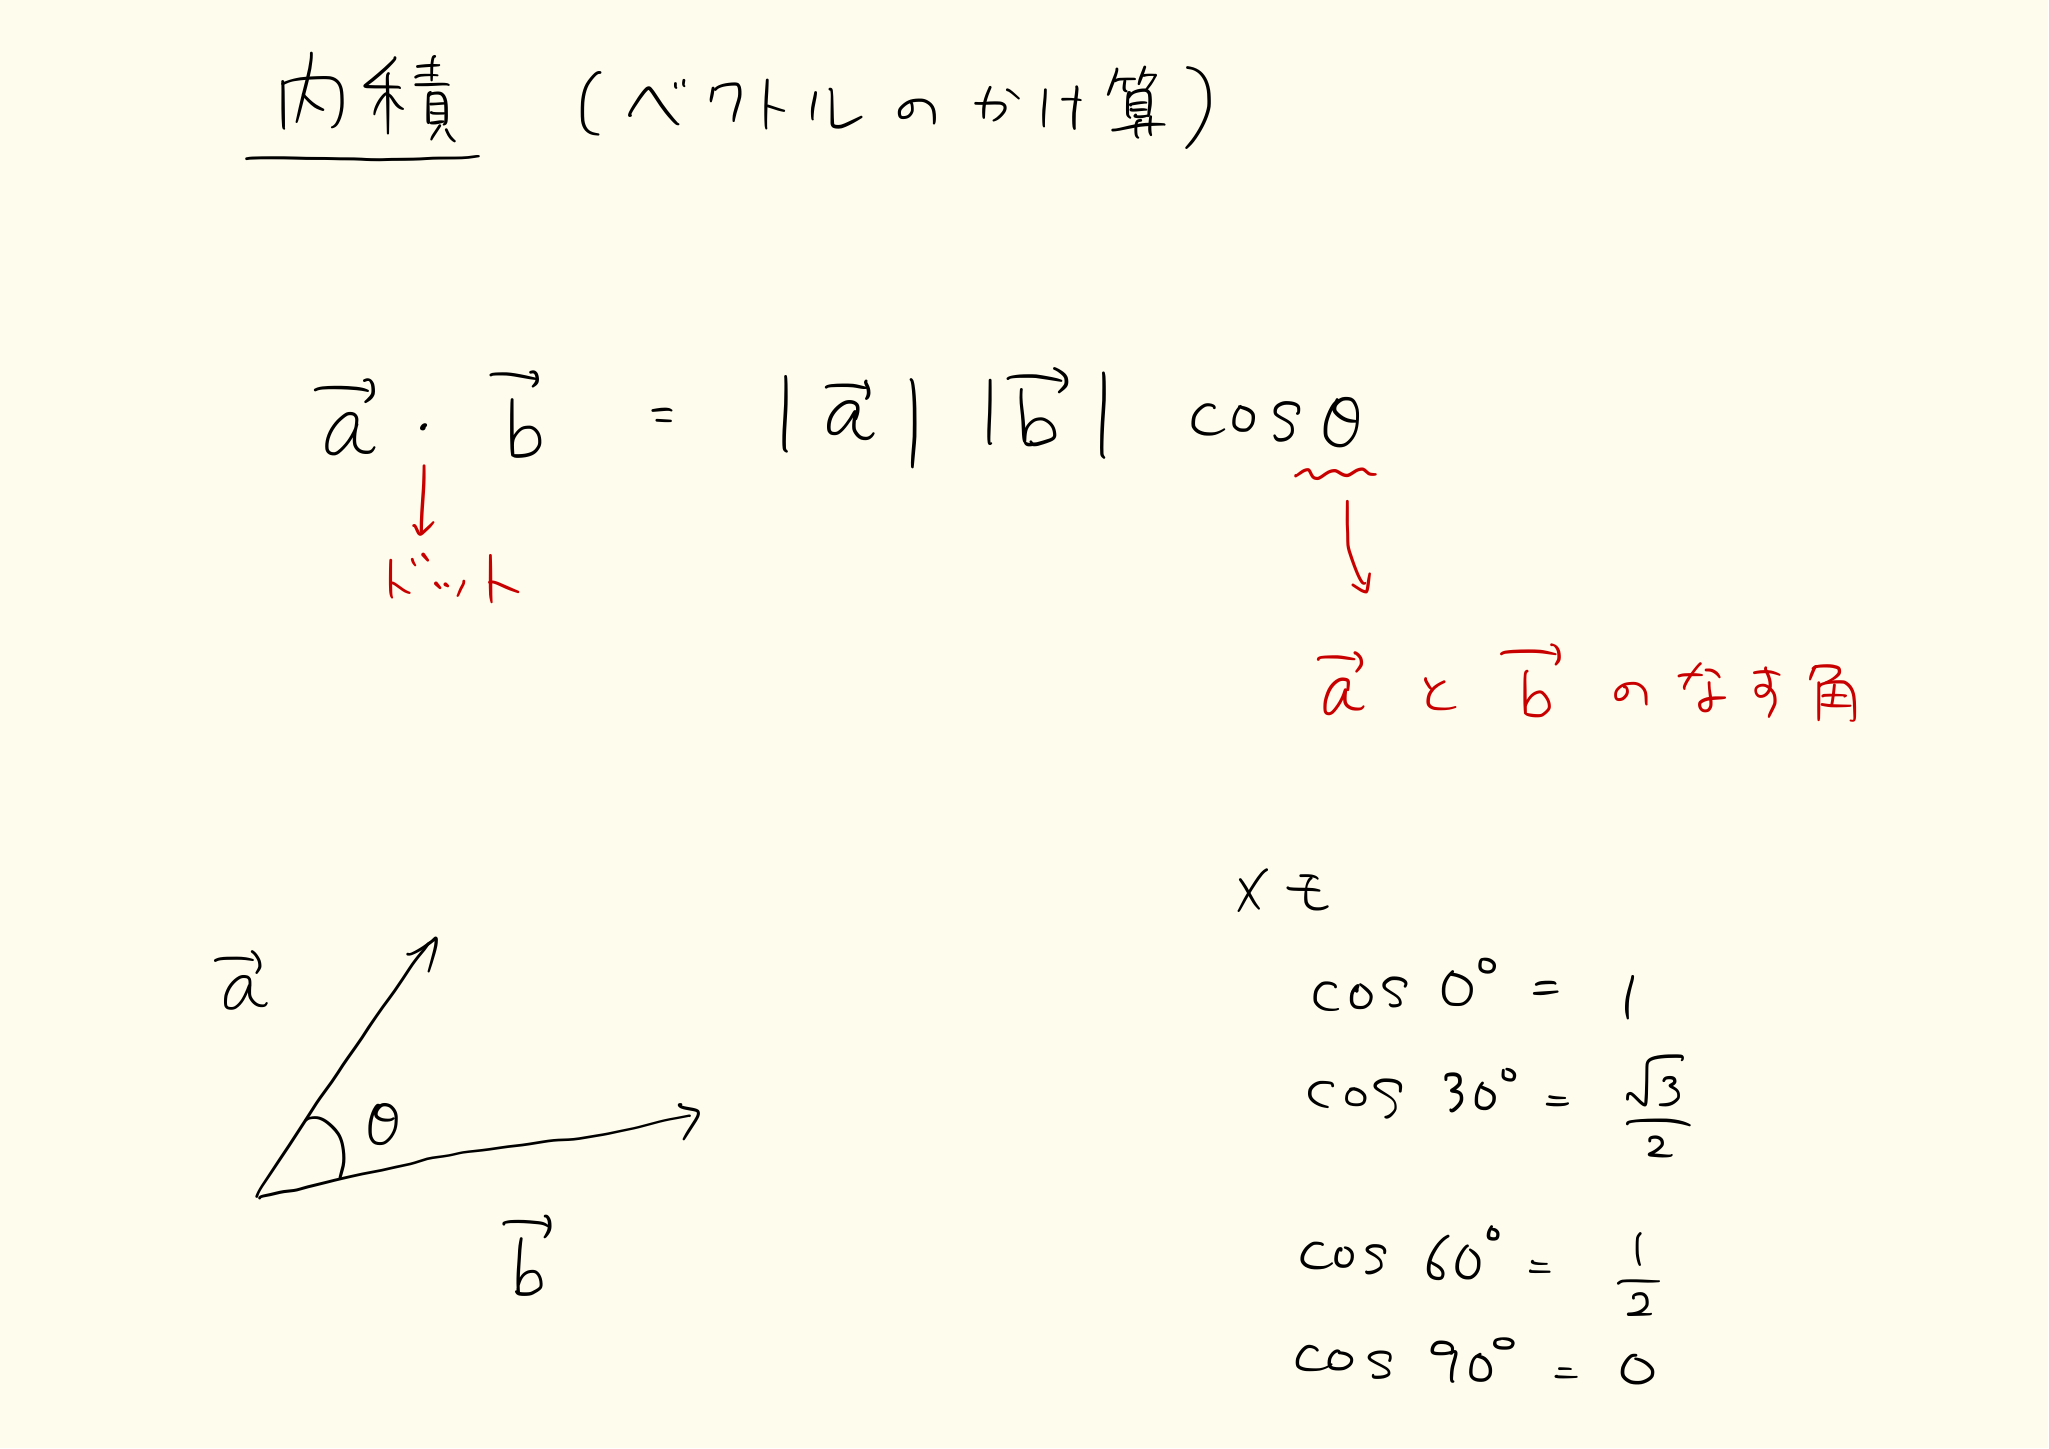 内積 (ベクトルのかけ算)
a⃗ · b⃗ = |a⃗| |b⃗| cosθ
ドット
a⃗ と b⃗ のなす角
メモ
cos 0° = 1
cos 30° = √3/2
cos 60° = 1/2
cos 90° = 0
a⃗
θ
b⃗